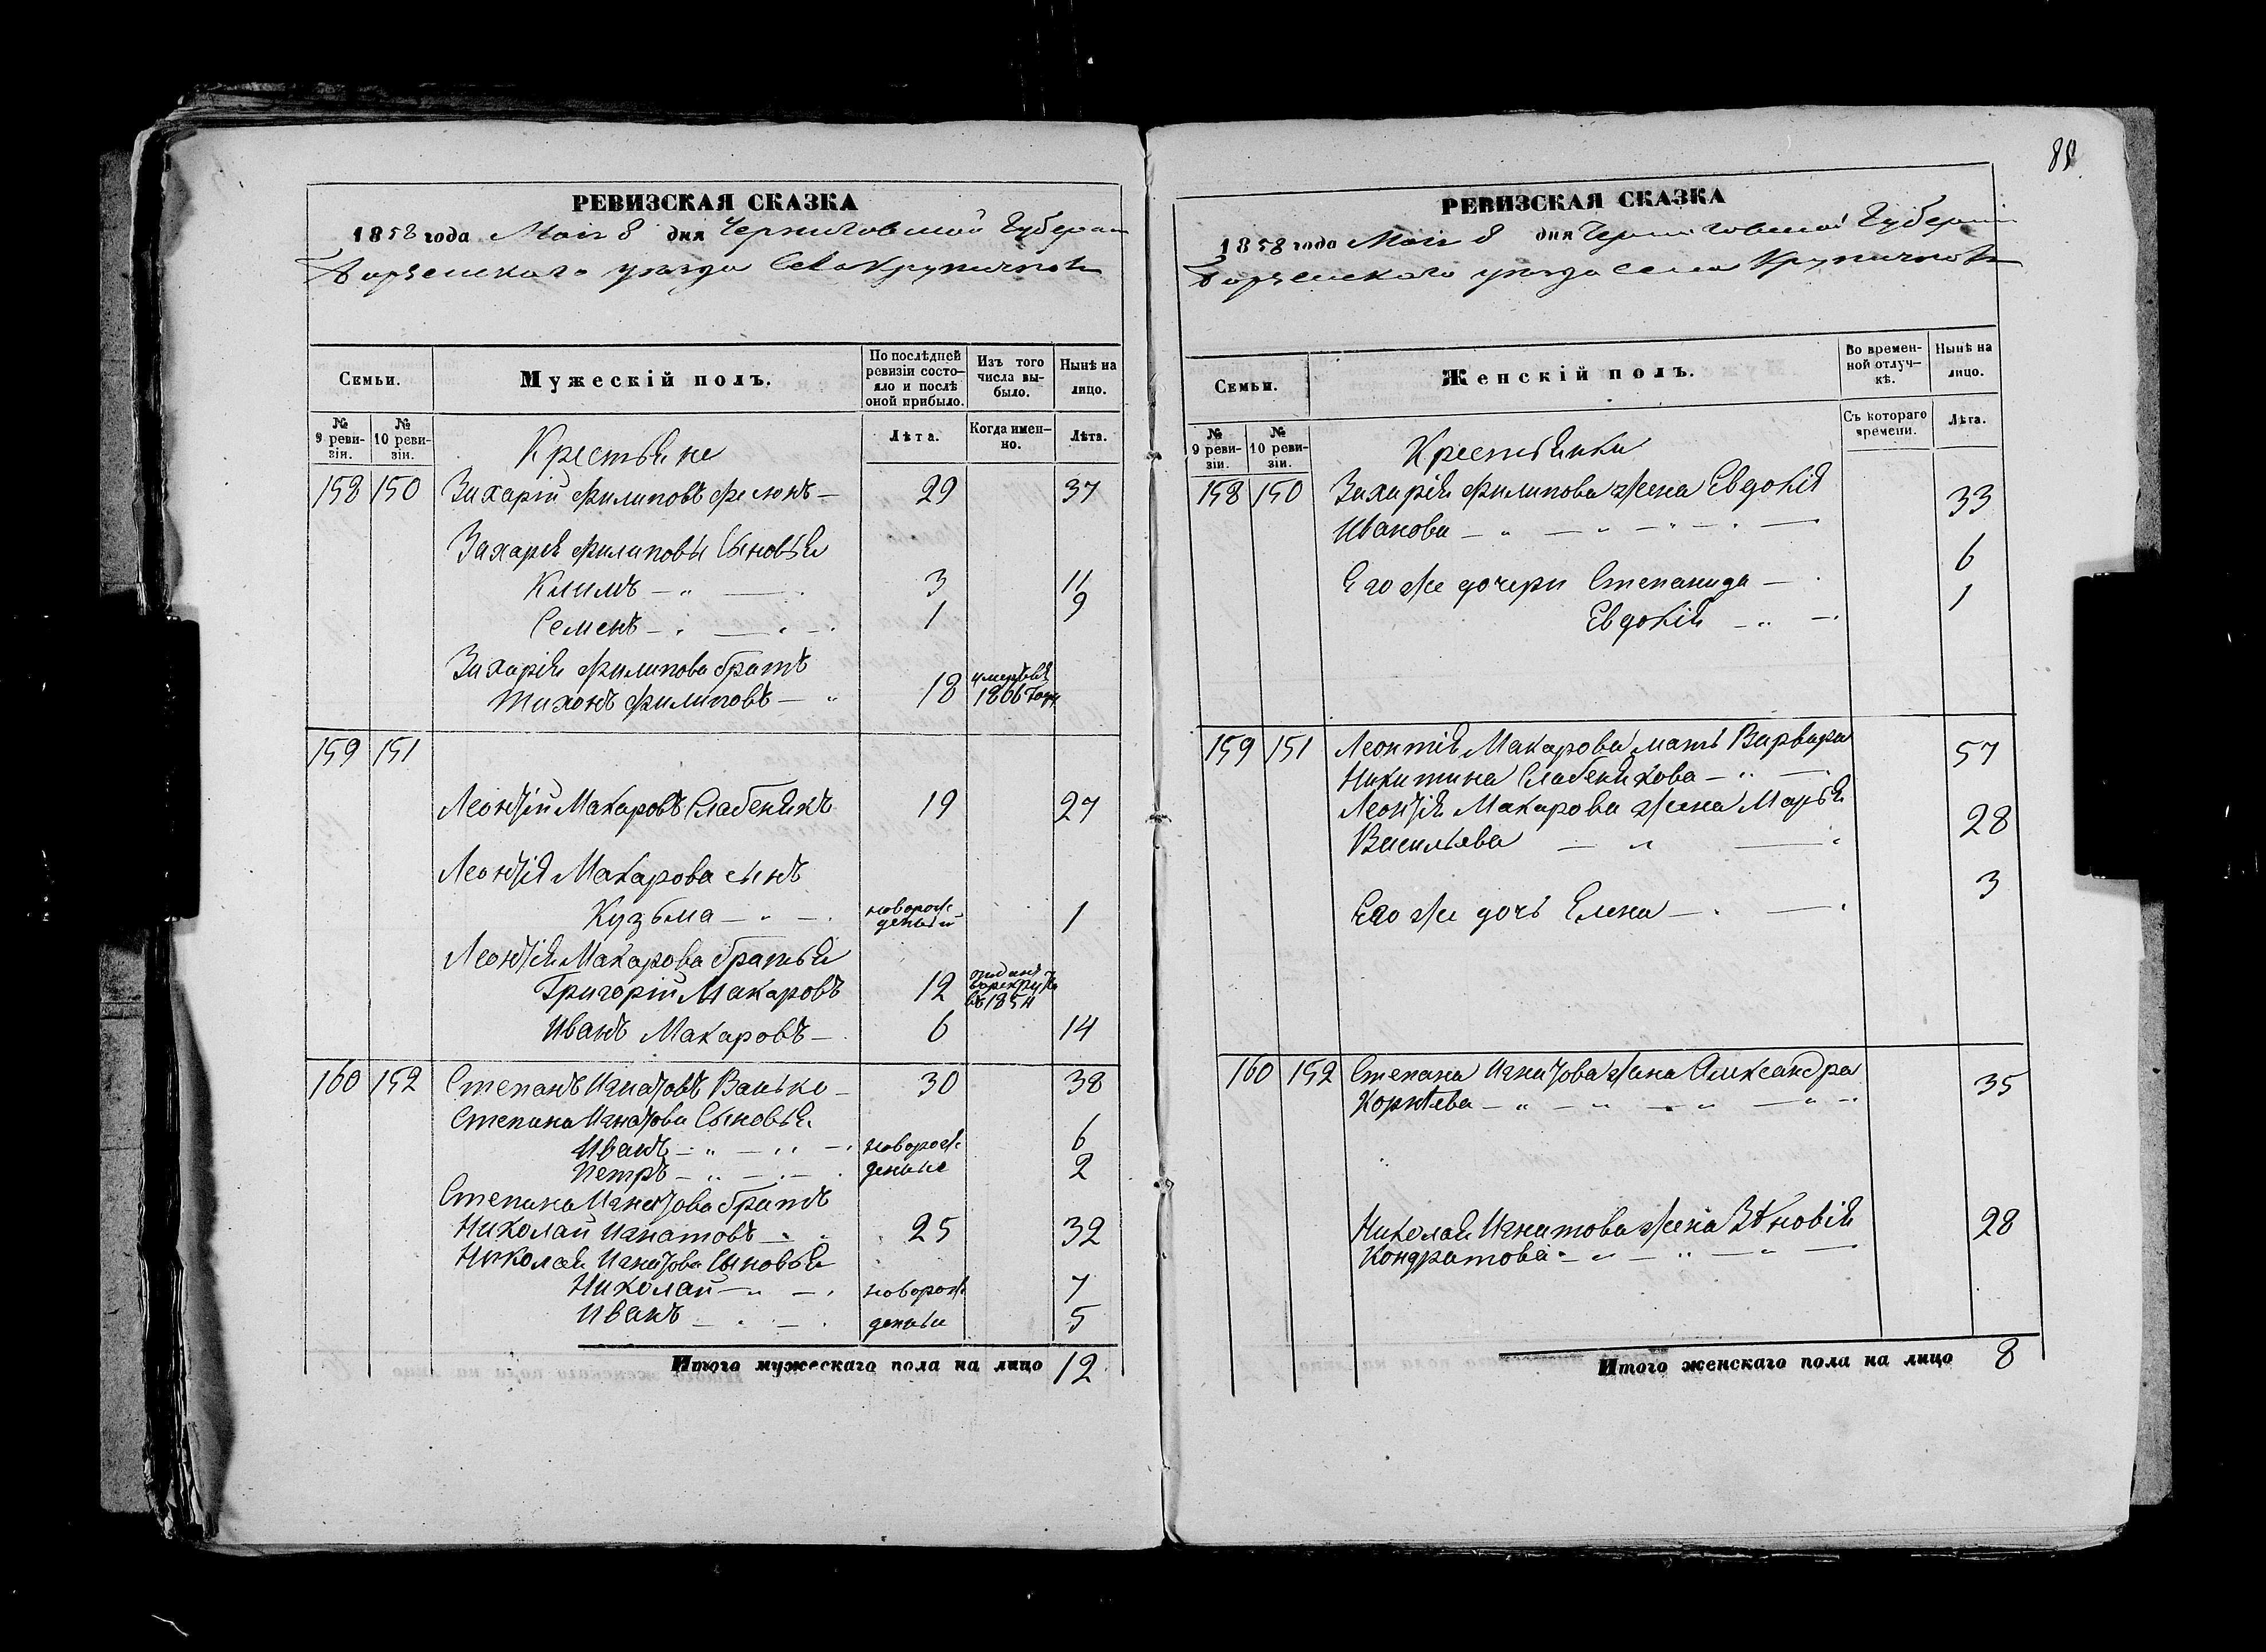 85
РЕВИЗСКАЯ СКАЗКА
1858 года Мая 8 дня Черниговской Губерніи
Борзенскаго уезда Села Крупичполя
Семьи.
Мужескій полъ.
По послѣдней ревизіи состояло и послѣ оной прибыло.
Изъ того числа выбыло.
Нынѣ на лицо.
№ 9 ревизіи.
№ 10 ревизіи.
Лѣта.
Когда именно.
Лѣта.
Крестьяне
158 150 Захарій Филиповъ 29 37
Захарія Филиповы Сыновья
Климъ — „ — 3 11
Семенъ — 1 9
Захарія Филипова братъ
Тихонъ Филиповъ — „ 18
159 151
Леонтій Макаровъ Слабеникъ 19 27
Леонтія Макарова сынъ
Кузьма — „ — новорожденый 1
Леонтія Макарова братья
Григорій Макаровъ 12 отданъ в рекруты въ 1854
Иванъ Макаровъ — 6 14
160 152 Степанъ Игнатовъ Ванько — 30 38
Степана Игнатова Сыновья
Иванъ — „ — новорож 6
Петръ — „ — деные 2
Степана Игнатова братъ
Николай Игнатовъ — 25 32
Николая Игнатова Сыновья
Николай — „ — новорож 7
Иванъ — деные 5
Итого мужескаго пола на лицо 12
РЕВИЗСКАЯ СКАЗКА
1858 года Мая 8 дня Черниговской Губерніи
Борзенскаго уезда села Крупичполя
Семьи.
Женскій полъ.
Во временной отлучкѣ.
Нынѣ на лицо.
№ 9 ревизіи.
№ 10 ревизіи.
Съ котораго времени.
Лѣта.
Крестьянки
158 150 Захарія Филипова жена Евдокія
Иванова — „ — 33
Его же дочери Степанида — 6
Евдокія — „ — 1
159 151 Леонтія Макарова мать Варвара
Никитина Слабеникова — „ — 57
Леонтія Макарова жена Марья
Васильева — „ — 28
Его же дочь Елена — 3
160 152 Степана Игнатова жена Александра
Корнѣева — „ — „ — 35
Николая Игнатова жена Зѣновія
Кондратова — „ — „ — 28
Итого женскаго пола на лицо 8